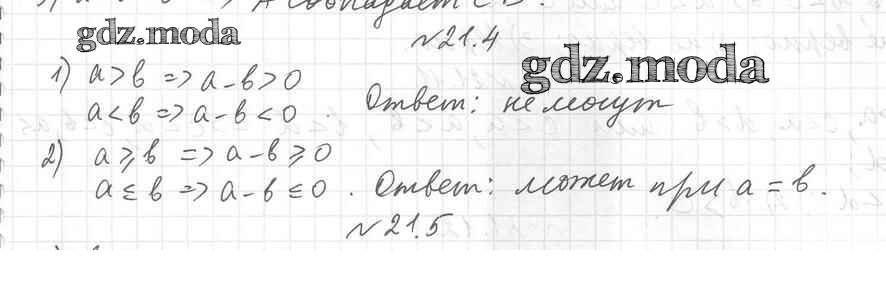 gdz.moda
№21.4
gdz.moda
1) a > b => a - b > 0
a < b => a - b < 0 . Ответ: не могут
2) a ⩾ b => a - b ⩾ 0
a ≤ b => a - b ≤ 0 . Ответ: может при a = b .
№21.5